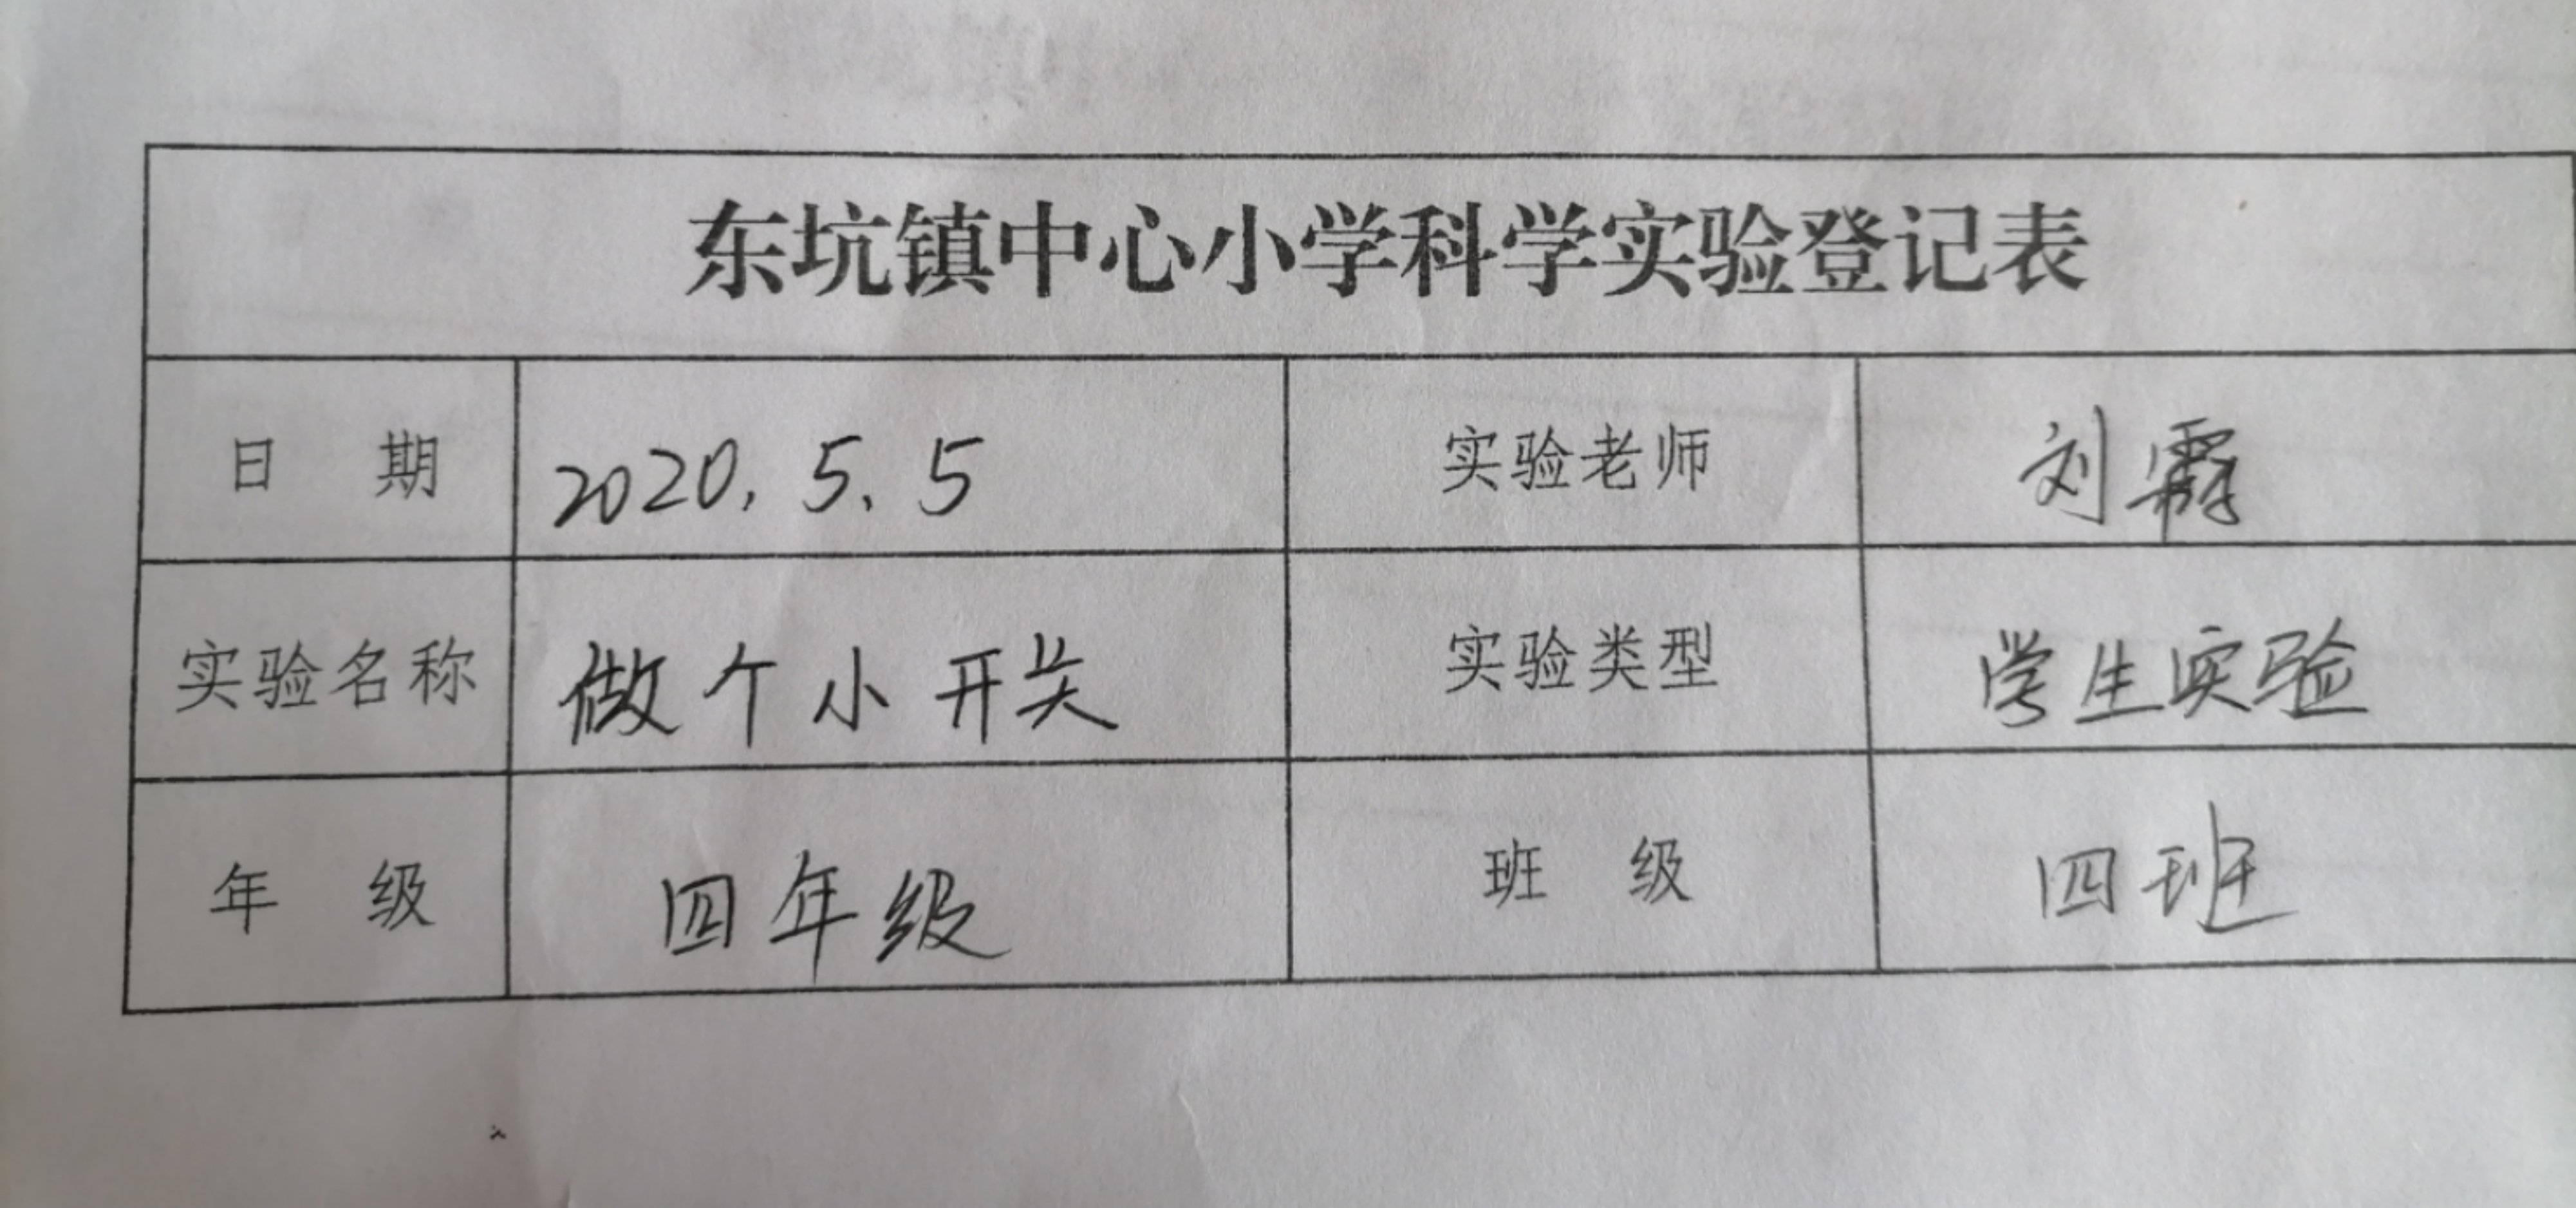 东坑镇中心小学科学实验登记表
日 期 2020.5.5 实验老师 刘霖
实验名称 做个小开关 实验类型 学生实验
年 级 四年级 班 级 四班